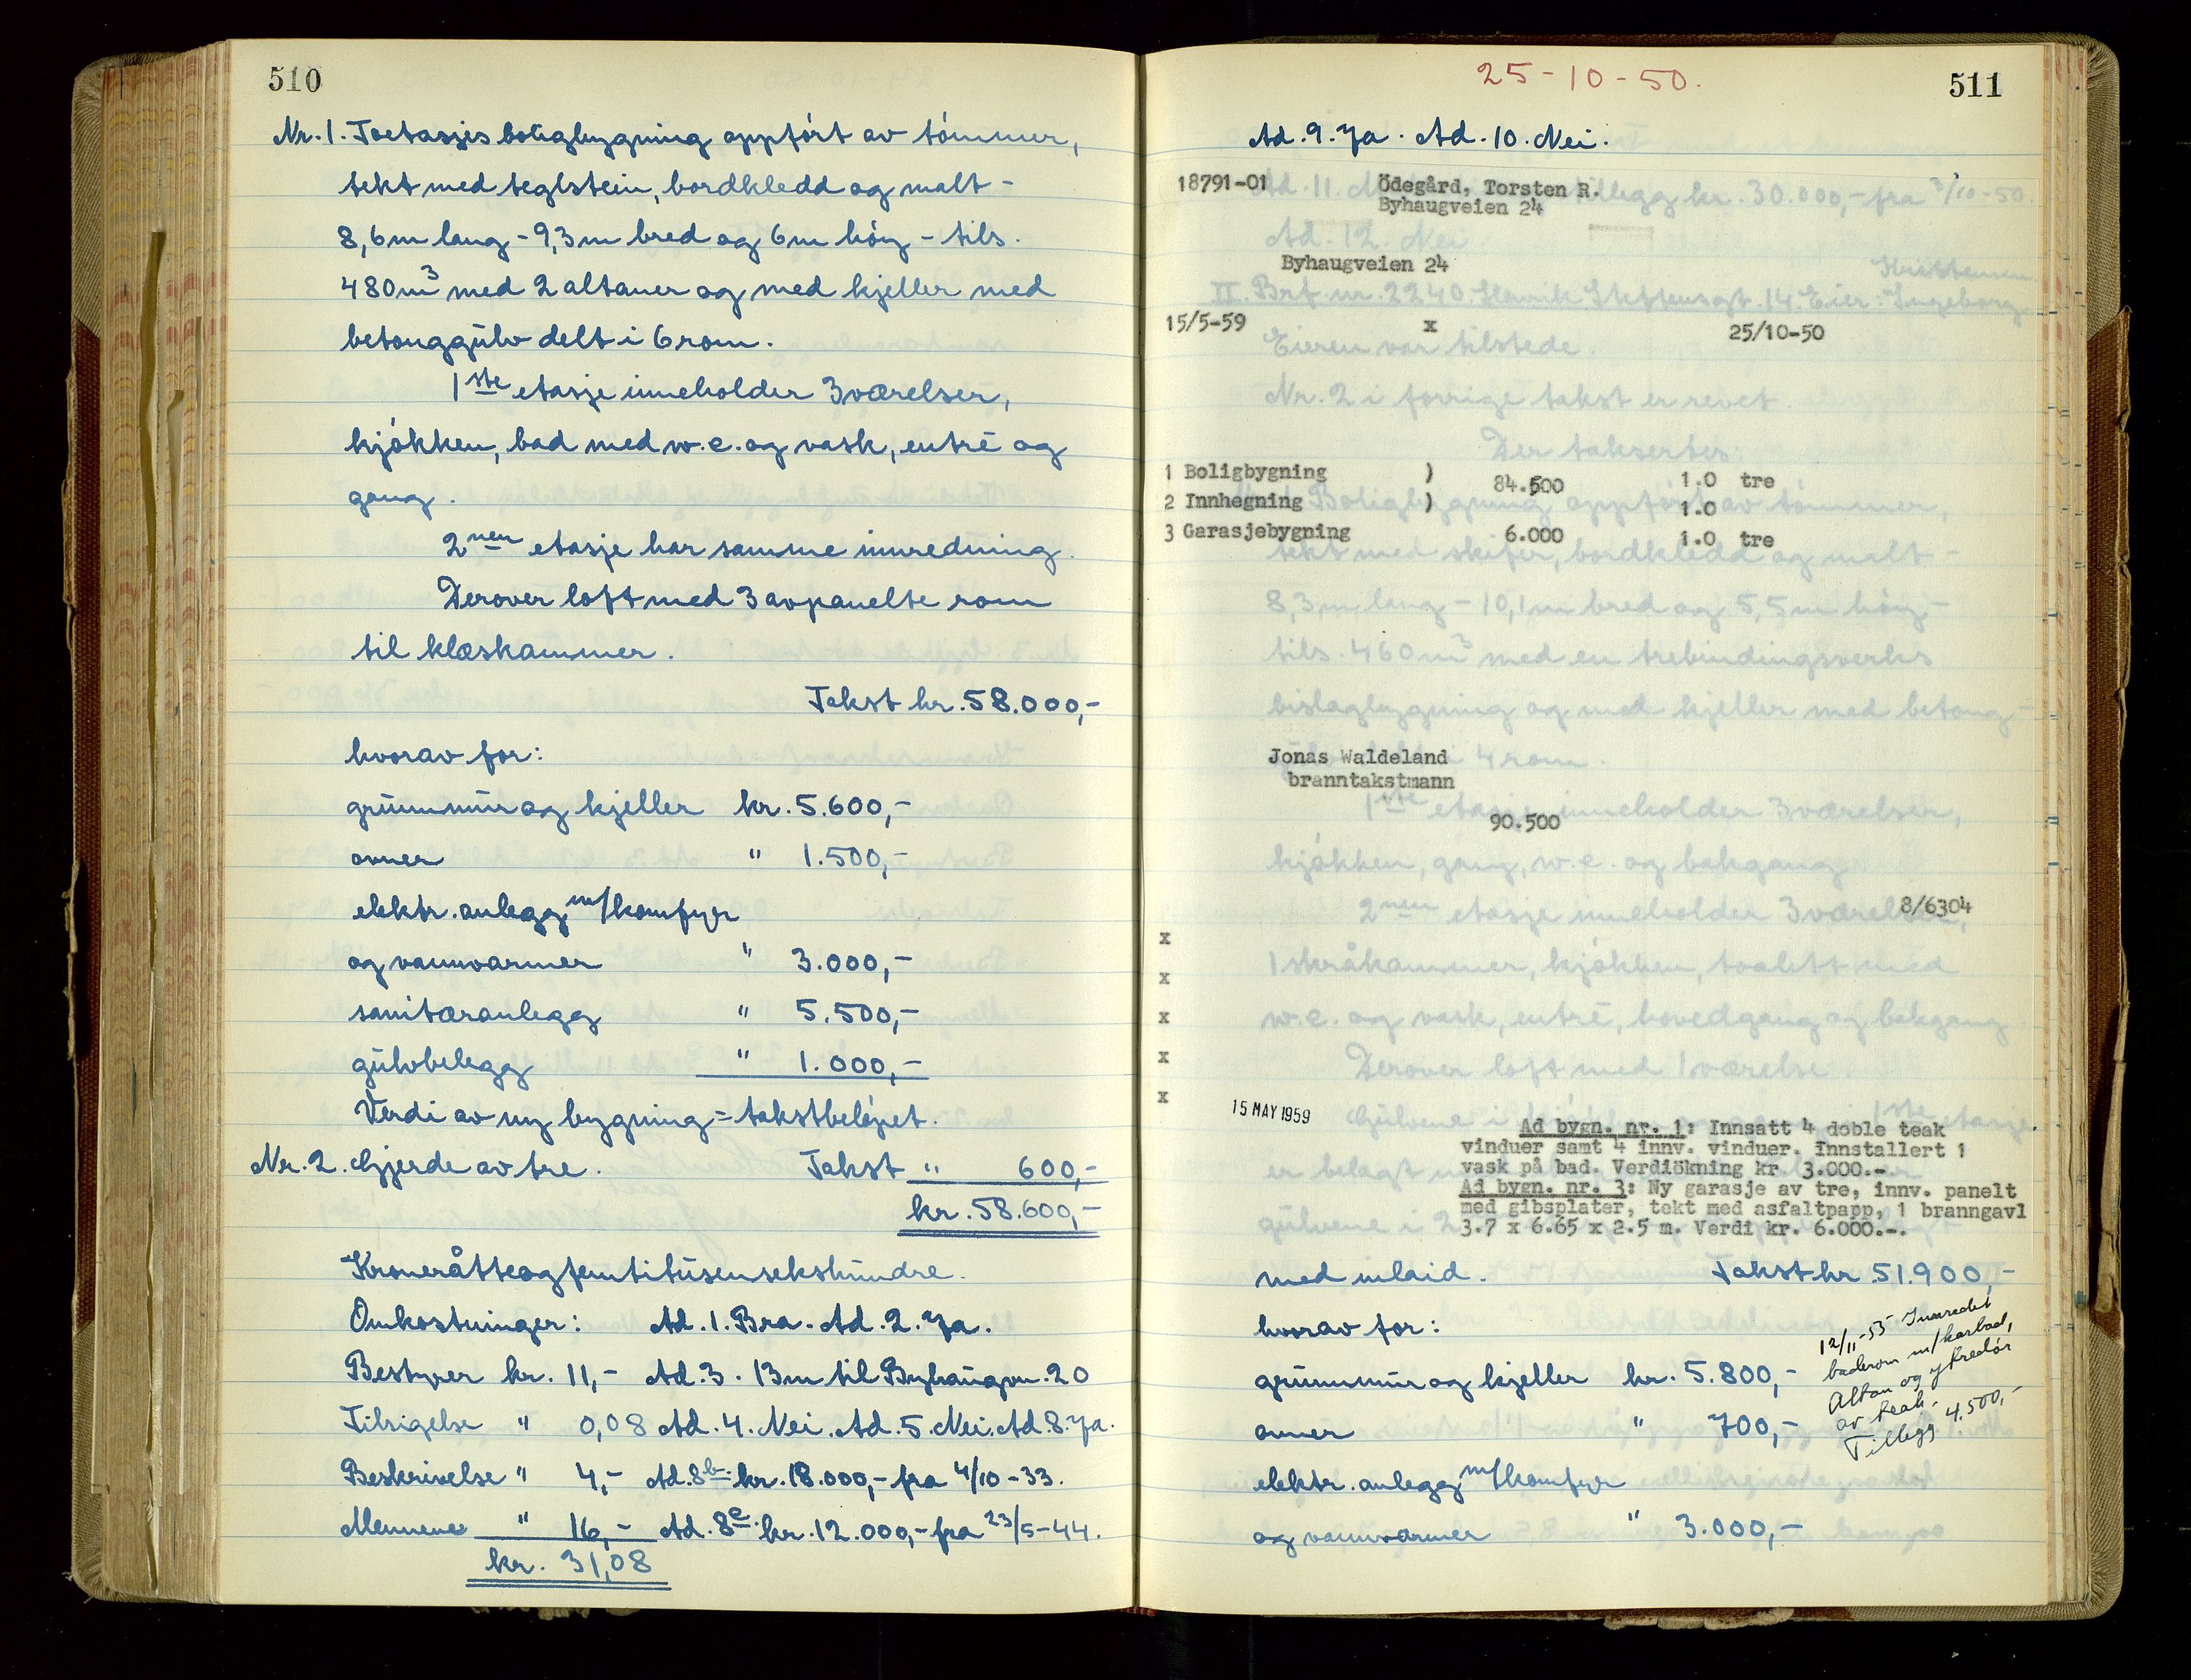 510
Nr. 1. Toetasjes boligbygning oppført av tømmer,
tekt med teglstein, bordkledd og malt -
8,6m lang - 9,3m bred og 6m høy - tils.
480m³ med 2 altaner og med kjeller med
betonggulv delt i 6 rom.
1ste etasje inneholder 3 værelser,
kjøkken, bad med w.c. og vask, entré og
gang.
2nen etasje har samme innredning.
Derover loft med 3 avpanelte rom
til klæskammer.
Takst kr. 58.000,-
hvorav for:
grunnmur og kjeller kr. 5.600,-
ovner " 1.500,-
elektr. anlegg m/komfyr
og vannvarmer " 3.000,-
sanitæranlegg " 5.500,-
gulvbelegg " 1.000,-
Verdi av ny bygning = takstbeløpet.
Nr. 2. Gjerde av tre. Takst " 600,-
kr. 58.600,-
Kroneråtteogfemtitusensekshundre.
Omkostninger: Ad. 1. Bra. Ad. 2. Ja.
Bestyrer kr. 11,- Ad. 3. 13m til Byhaugvn. 20
Tilsigelse " 0,08 Ad. 4. Nei. Ad. 5. Nei. Ad. 8. Ja.
Beskrivelse " 4,- Ad. 8b. kr. 18.000,- fra 4/10-33.
Mennene " 16,- Ad. 8c. kr. 12.000,- fra 23/5-44.
kr. 31,08
25-10-50.
511
Ad. 9. Ja. Ad. 10. Nei.
18791-01 Ödegård, Torsten R.
Byhaugveien 24
Ad. 11. tillegg kr. 30.000,- fra 3/10-50.
Ad. 12. Nei.
Byhaugveien 24
II. Brf. nr. 2240. Henrik Steffensgt. 14. Eier: Ingeborg
Kristensen
15/5-59 x 25/10-50
Eieren var tilstede.
Nr. 2 i forrige takst er revet.
Der taksertes:
1 Boligbygning ) 84.500 1.0 tre
2 Innhegning ) 1.0
Boligbygning oppført av tømmer,
3 Garasjebygning 6.000 1.0 tre
tekt med skifer, bordkledd og malt -
8,3m lang - 10,1m bred og 5,5m høy -
tils. 460m³ med en trebindingsverks
bislagbygning og med kjeller med betong-
Jonas Waldeland
4 rom.
branntakstmann
1ste etasje inneholder 3 værelser,
90.500
kjøkken, gang, w.c. og bakgang.
8/6304
2nen etasje inneholder 3 værelser,
x
1 skråkammer, kjøkken, toalett med
x
w.c. og vask, entré, hovedgang og bakgang
x
Derover loft med 1 værelse.
x
x
15 MAY 1959
Gulvene i 1ste etasje
Ad bygn. nr. 1: Innsatt 4 doble teak
vinduer samt 4 innv. vinduer. Innstallert 1
vask på bad. Verdiökning kr. 3.000.-
er belagt
Ad bygn. nr. 3: Ny garasje av tre, innv. panelt
med gibsplater, tekt med asfaltpapp, 1 branngavl
gulvene i 2
3.7 x 6.65 x 2.5 m. Verdi kr. 6.000.-.
med inlaid. Takst kr 51.900,-
hvorav for:
grunnmur og kjeller kr. 5.800,-
ovner " 700,-
elektr. anlegg m/komfyr
og vannvarmer " 3.000,-
12/11-55 Innredet
baderom m/karbad,
Altan og ytredør
av teak.
Tillegg 4.500,-